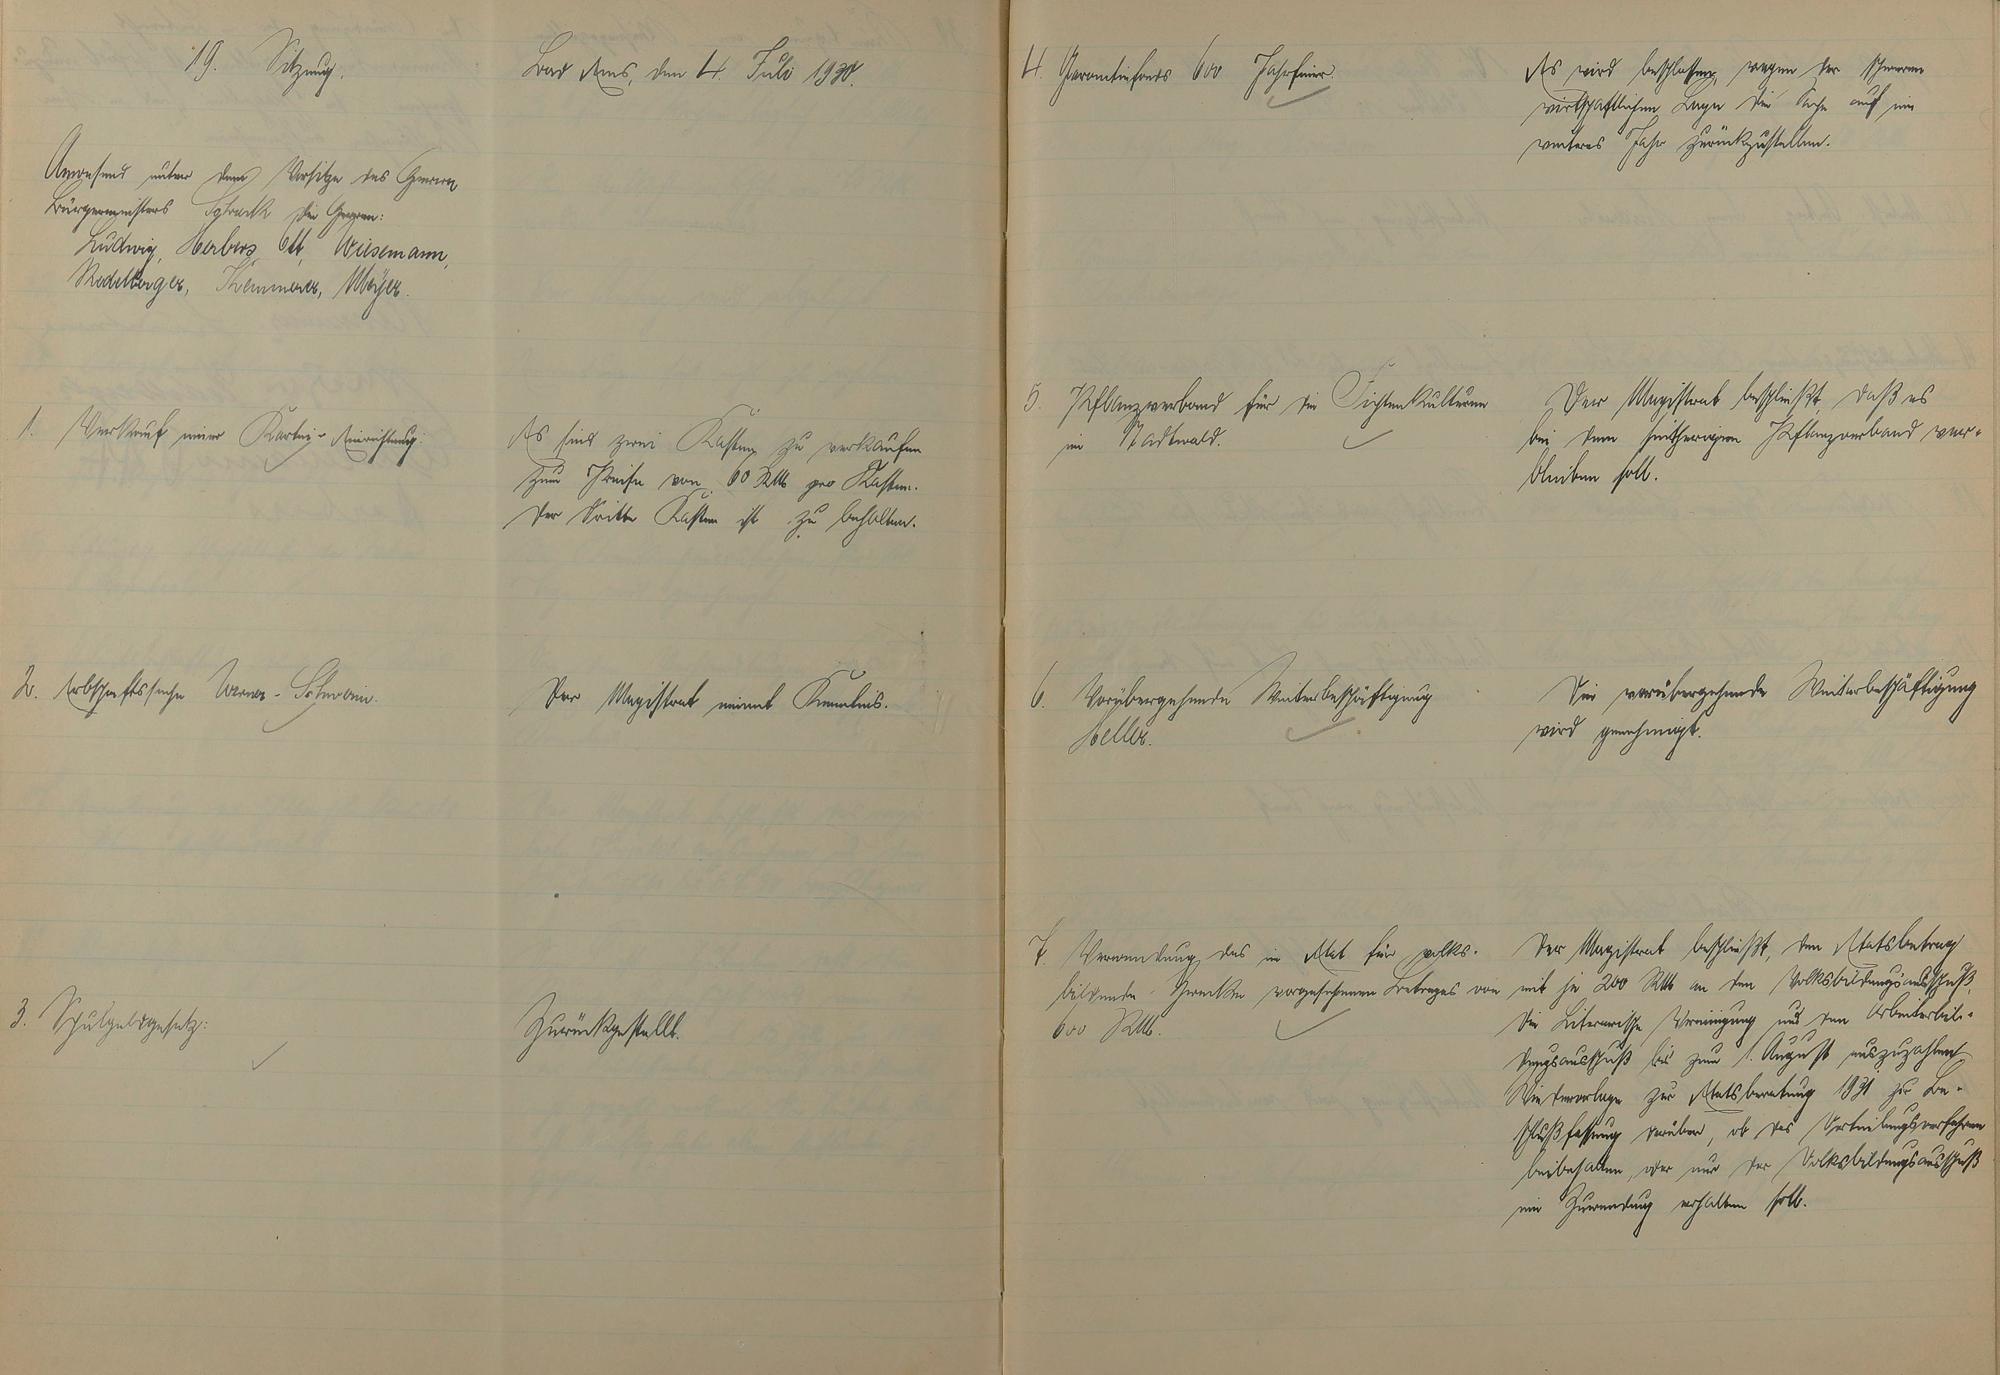 19. Sitzung.
Bad Ems, den 4. Juli 1930.
Anwesend unter dem Vorsitze des Herrn
Bürgermeisters Schrack die Herren:
Ludwig, Herbers, Ott, Wiesemann,
Redelberger, Kemmerer, Meyer.
1. Verkauf einer Kartei-Einrichtung.
Es sind zwei Kasten zu verkaufen
zum Preise von 60 RM pro Kasten.
Der dritte Kasten ist zu behalten.
2. Erbschaftssache Werner-Schwein.
Der Magistrat nimmt Kenntnis.
3. Schulgeldgesetz:
Zurückgestellt.
4. Garantiefonds 600 Jahrfeier.
Es wird beschlossen, wegen der schweren
wirtschaftlichen Lage die Sache auf ein
weiteres Jahr zurückzustellen.
5. Pflanzverband für die Fichtenkulturen
im Stadtwald.
Der Magistrat beschließt, daß es
bei dem seitherigen Pflanzverband ver-
bleiben soll.
6. Vorübergehende Weiterbeschäftigung
Heller.
Die vorübergehende Weiterbeschäftigung
wird genehmigt.
7. Verwendung des im Etat für volks-
bildende Zwecke vorgesehenen Betrages von
600 RM.
Der Magistrat beschließt, den Etatsbetrag
mit je 200 RM an den Volksbildungsausschuß,
die Literarische Vereinigung und den Arbeiterbil-
dungsausschuß bis zum 1. August auszuzahlen
Wiedervorlage zur Etatsberatung 1931 zur Be-
schlußfassung darüber, ob das Verteilungsverfahren
beibehalten, oder nur der Volksbildungsausschuß
eine Zuwendung erhalten soll.